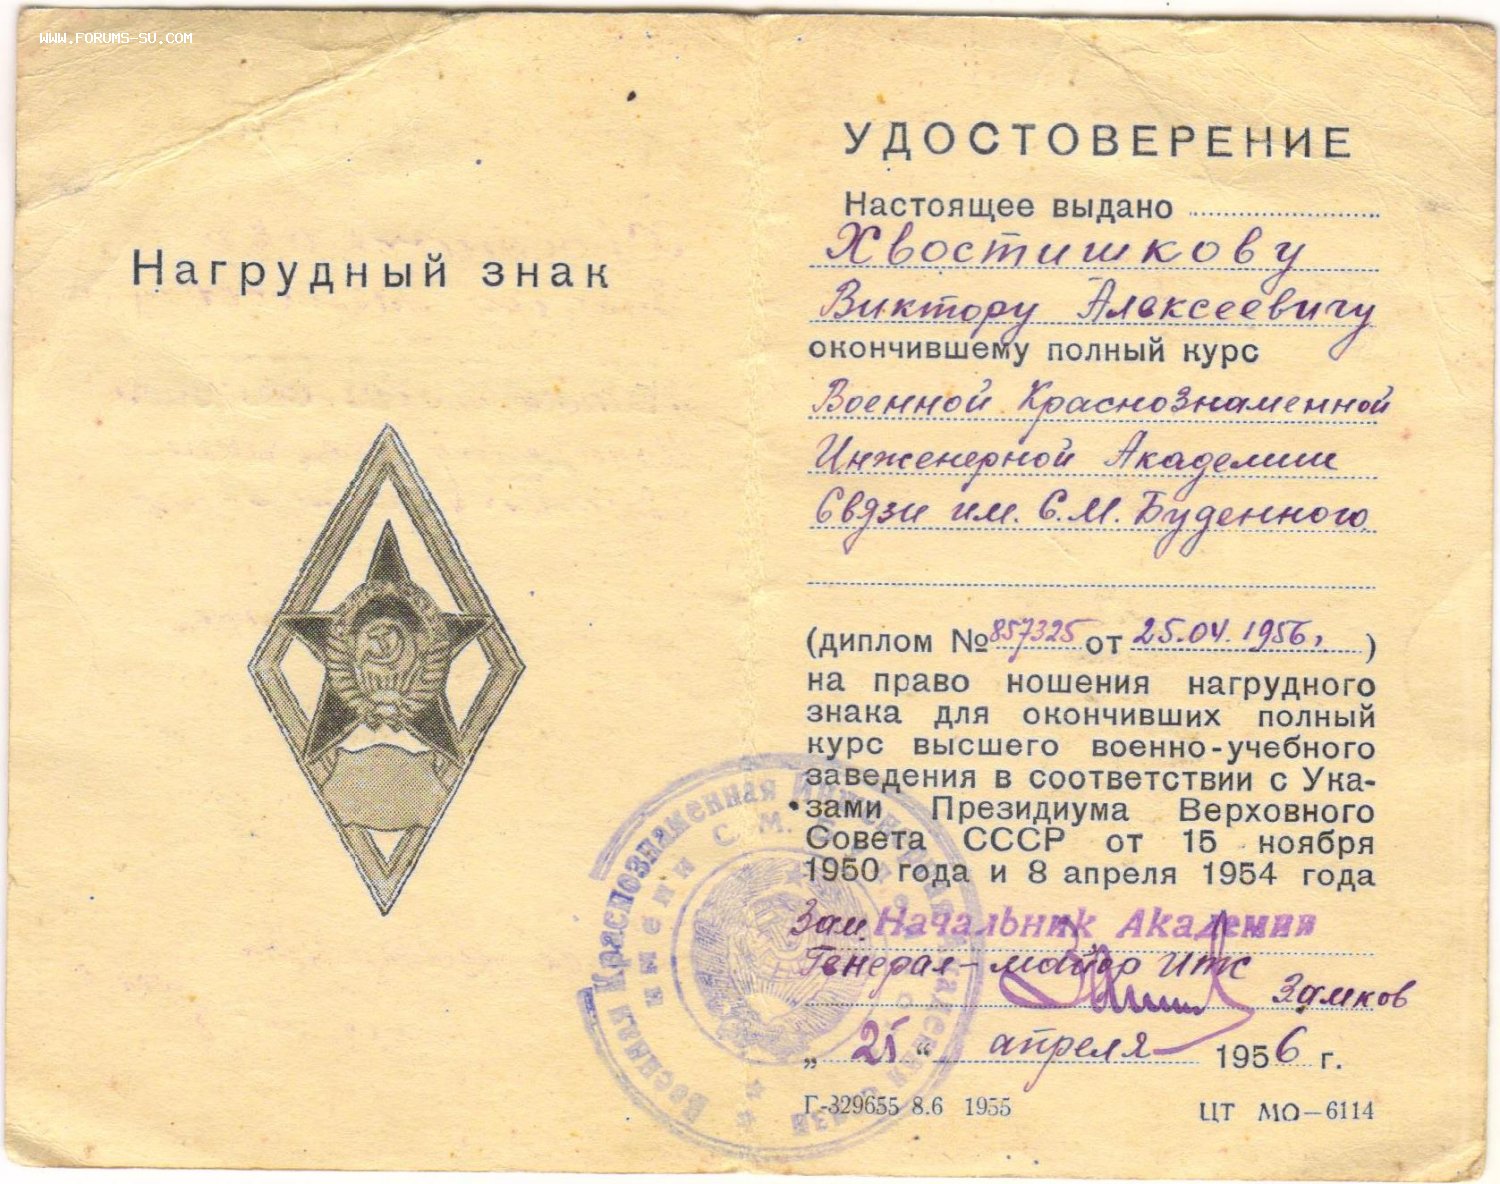 WWW.FORUMS-SU.COM
Нагрудный знак
УДОСТОВЕРЕНИЕ
Настоящее выдано
Хвостишкову
Виктору Алексеевичу
окончившему полный курс
Военной Краснознаменной
Инженерной Академии
Связи им. С.М. Буденного
(диплом № 857325 от 25.04.1956г.)
на право ношения нагрудного
знака для окончивших полный
курс высшего военно-учебного
заведения в соответствии с Ука-
зами Президиума Верховного
Совета СССР от 15 ноября
1950 года и 8 апреля 1954 года
Зам. Начальник Академии
Генерал-майор ИТС
Замков
„25“ апреля 1956 г.
Г-329655 8.6 1955
ЦТ МО-6114
Военная Краснознаменная Инженерная Академия Связи
имени С. М. Буденного